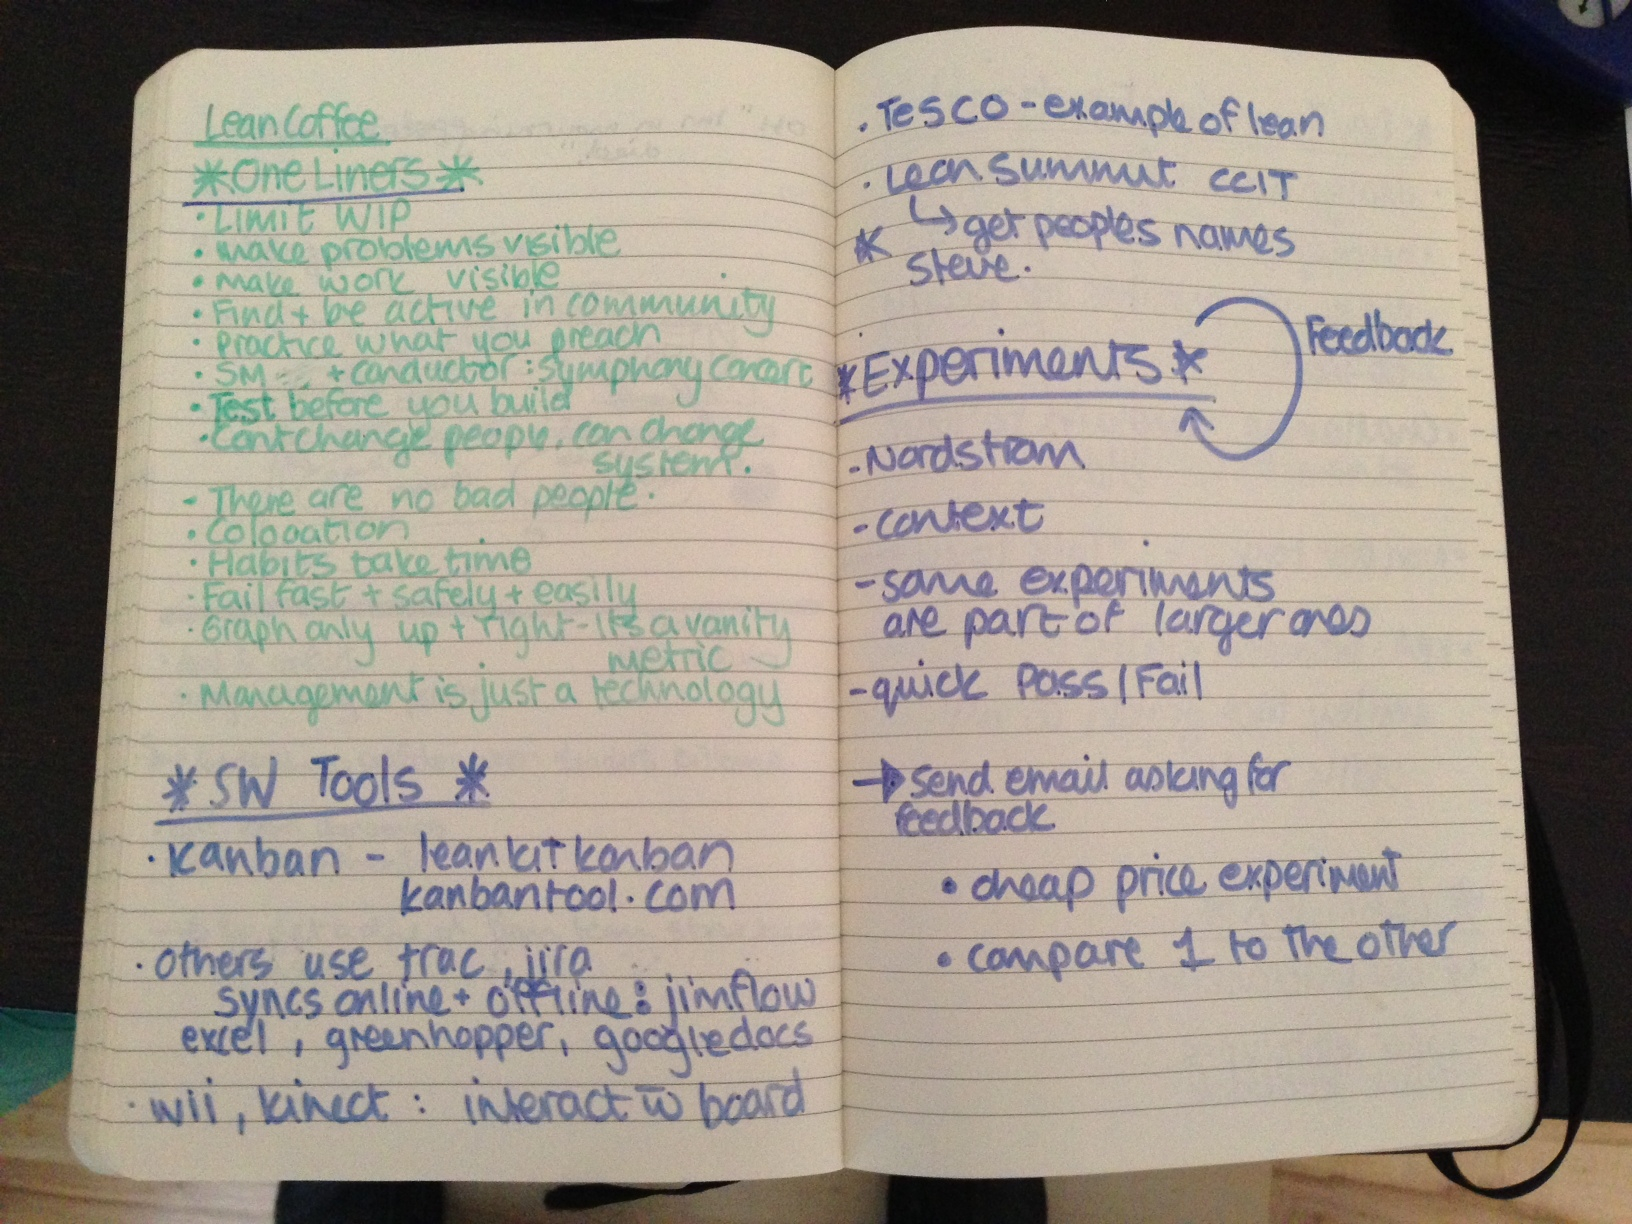 Lean Coffee
*One Liners*
• Limit WIP
• make problems visible
• make work visible
• Find + be active in community
• practice what you preach
• SM + conductor : symphony concert
• Test before you build
• Cant change people, can change
system.
- There are no bad people.
• Colocation
• Habits take time
• Fail fast + safely + easily
• Graph only up + right - its a vanity
metric
• Management is just a technology
*SW Tools*
• kanban - leankit kanban
kanbantool.com
• others use trac, jira
syncs online + offline : jimflow
excel, greenhopper, googledocs
• wii, kinect : interact w board
• TESCO - example of lean
• Lean Summit CCIT
↳ get peoples names
* Steve.
Feedback
*Experiments*
- Nordstrom
- context
- some experiments
are part of larger ones
- quick Pass / Fail
→ send email asking for
feedback
• cheap price experiment
• compare 1 to the other